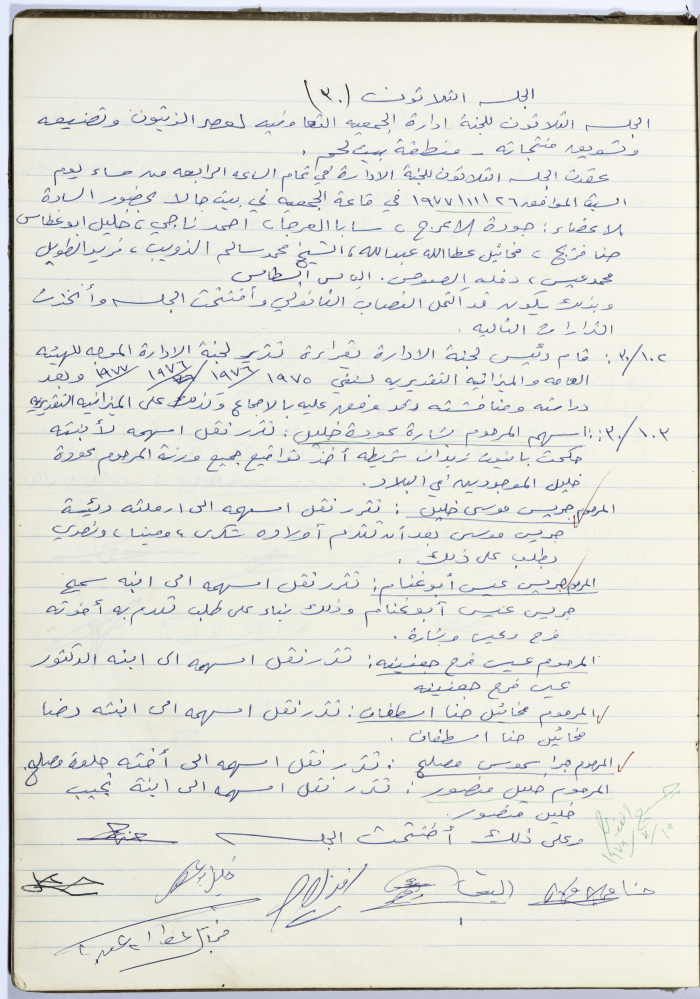 الجلسه الثلاثون (٣٠)
الجلسه الثلاثون للجنة ادارة الجمعيه التعاونيه لعصر الزيتون وتصنيعه
وتسويق منتجاته - منطقة بيت لحم .
عقدت الجلسه الثلاثون للجنة الادارة في تمام الساعه الرابعه من مساء يوم
السبت الموافق ٢٦/١١/١٩٧٧ في قاعة الجمعيه في بيت جالا بحضور السادة
الاعضاء : جودة الاعرج ، سابا العرجا ، احمد ناجي ، خليل ابو غطاس
حنا فريج ، مخائيل عطاالله عبدالله ، الشيخ محمد سالم الذويب ، فريد الطويل
محمد عيسى ، دفله الصوص . الياس البطاس
وبذلك يكون قد اكتمل النصاب القانوني وأفتتحت الجلسه وأتخذت
القرارات التاليه .
٣٠/١٠٢ : قام رئيس لجنة الادارة بقراءة تقرير لجنة الادارة الموجه للهيئه
العامه والميزانيه التقديريه لسنتي ١٩٧٥/١٩٧٦ ١٩٧٦/١٩٧٧ وبعد
دراسته ومناقشته ووفق عليه بالاجماع وكذلك على الميزانيه التقديريه
٣٠/١٠٣ : اسهم المرحوم بشارة عودة خليل : تقرر نقل اسهمه لأبنته
حكمت شريطه أخذ تواقيع جميع ورثة المرحوم عودة
خليل الموجودين في البلاد .
المرحوم جريس موسى خليل : تقرر نقل اسهمه الى ارملته رئيسة
جريس موسى بعد أن تقدم أولاده شكري ، ومينا ، ونصري
بطلب على ذلك .
المرحوم جريس عيسى أبو غنام : تقرر نقل اسهمه الى ابنه سميح
جريس عيسى أبو غنام وذلك بناء على طلب تقدم به أخوته
فرح وعيسى وبشارة .
المرحوم عيسى فرح جعنينه : تقرر نقل اسهمه الى ابنه الدكتور
عيسى فرح جعنينه
المرحوم مخائيل حنا اسطفان : تقرر نقل اسهمه الى ابنته رضا
مخائيل حنا اسطفان .
المرحوم جرا سموس مصلح : تقرر نقل اسهمه الى أخته حلوة مصلح .
المرحوم خليل منصور : تقرر نقل اسهمه الى ابنة نجيب
خليل منصور .
وعلى ذلك أختتمت الجلسه